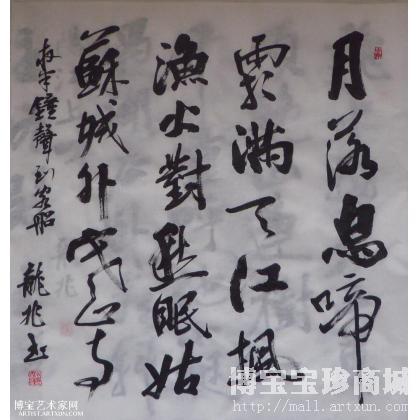 月落烏啼
霜滿天江楓
漁火對愁眠姑
蘇城外寒山寺
夜半鐘聲到客船
龍兆
博宝艺术家网
ARTIST.ARTXUN.COM
博宝宝珍商城
http://mall.artxun.com